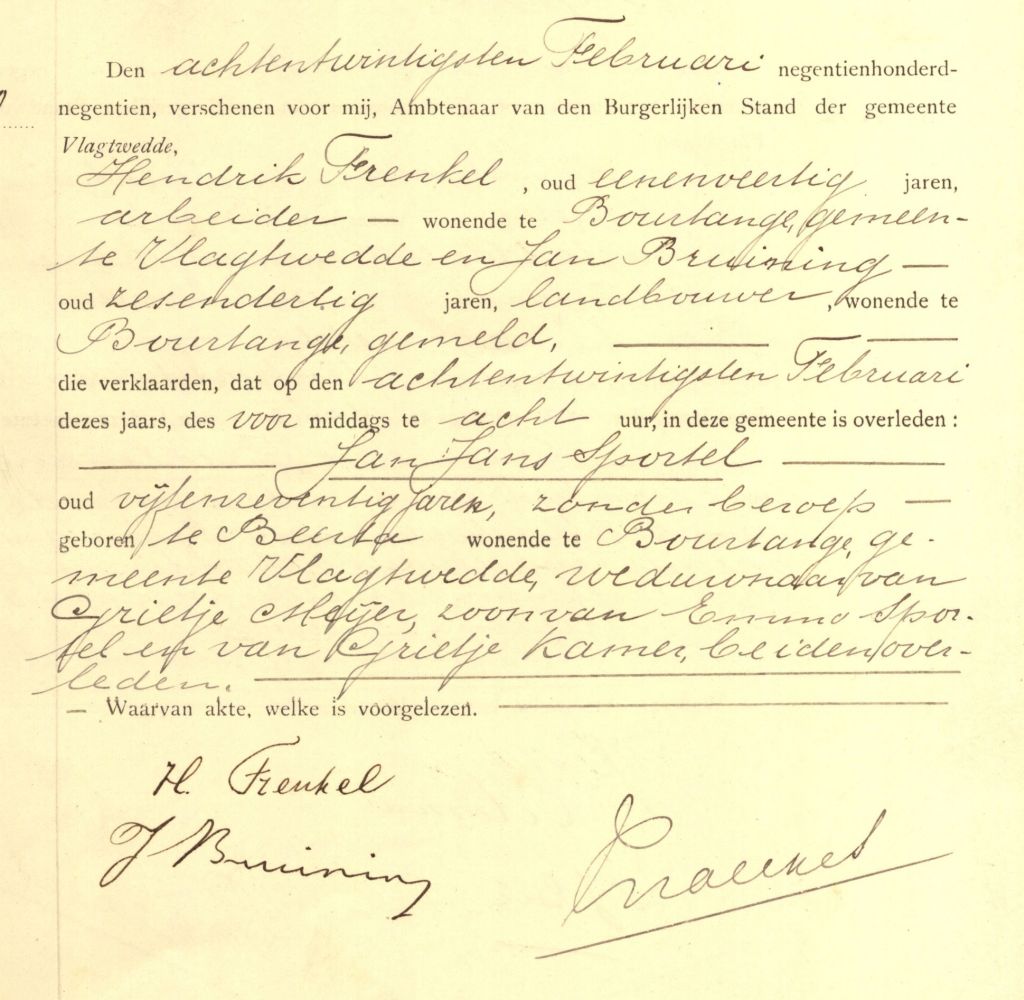 Den achtentwintigsten Februari negentienhonderd-
negentien, verschenen voor mij, Ambtenaar van den Burgerlijken Stand der gemeente
Vlagtwedde,
Hendrik Frenkel, oud eenenveertig jaren,
arbeider — wonende te Bourtange, gemeen-
te Vlagtwedde en Jan Bruining —
oud zesendertig jaren, landbouwer, wonende te
Bourtange, gemeld,
die verklaarden, dat op den achtentwintigsten Februari
dezes jaars, des voor middags te acht uur, in deze gemeente is overleden:
— Jan Jans Sportel —
oud vijfenzeventig jaren, zonder beroep —
geboren te Beerta wonende te Bourtange, ge-
meente Vlagtwedde, weduwnaar van
Grietje Meijer, zoon van Emmo Spor-
tel en van Grietje Kamer, beiden over-
leden. —
— Waarvan akte, welke is voorgelezen. —
H. Frenkel
J Bruining